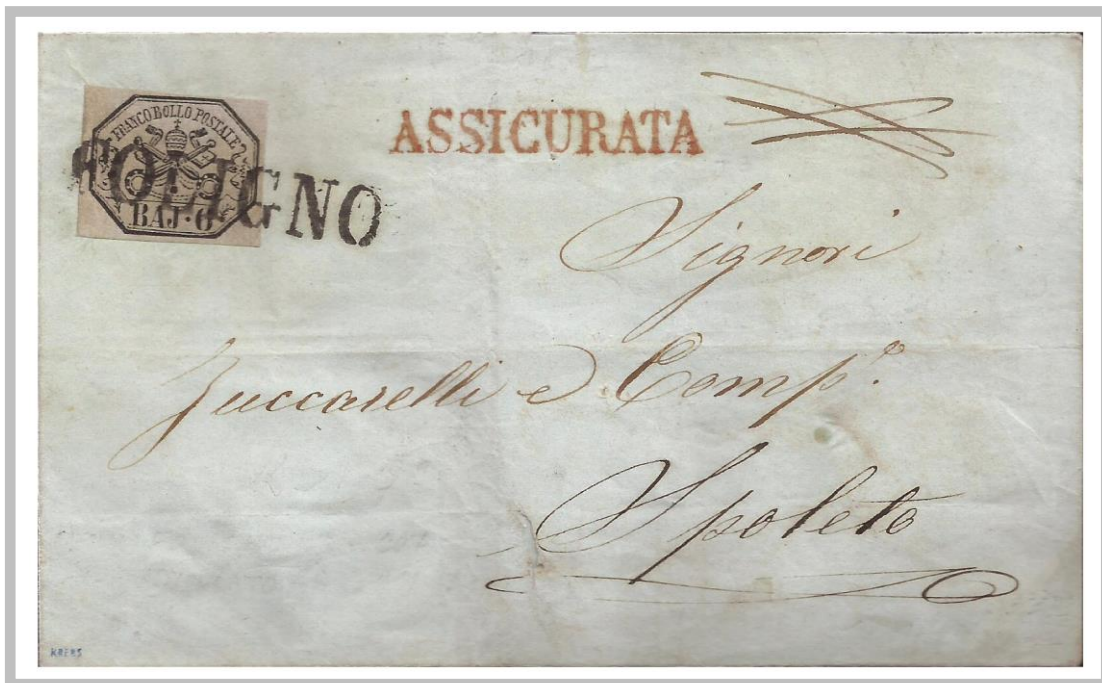 FRANCO BOLLO POSTALE
BAJ. 6
FOLIGNO
ASSICURATA
Signori
Zuccarelli e Comp.º
Spoleto
KREBS